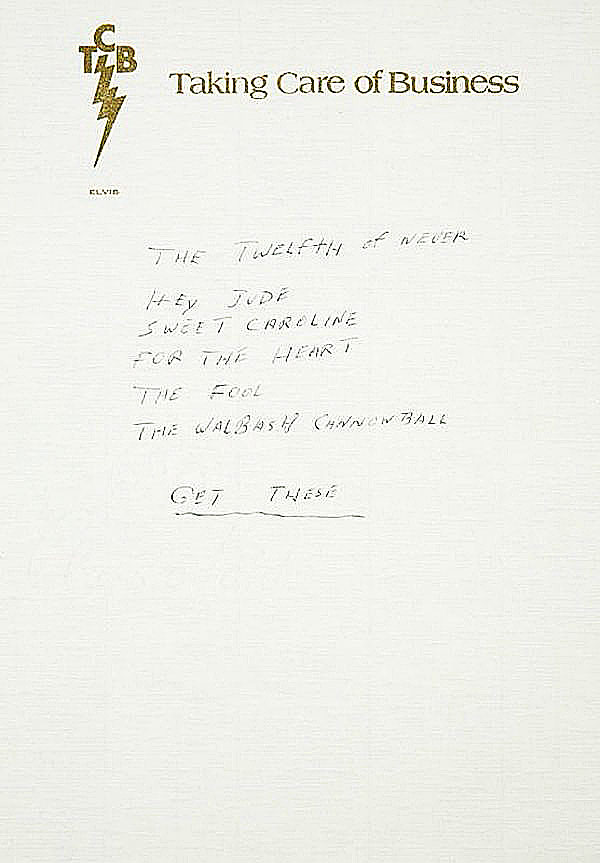 TCB
Taking Care of Business
ELVIS
THE TWELFTH of NEVER
HEy JUDE
SWEET CAROLINE
FOR THE HEART
THE FOOL
THE WALBASH CANNONBALL
GET THESE